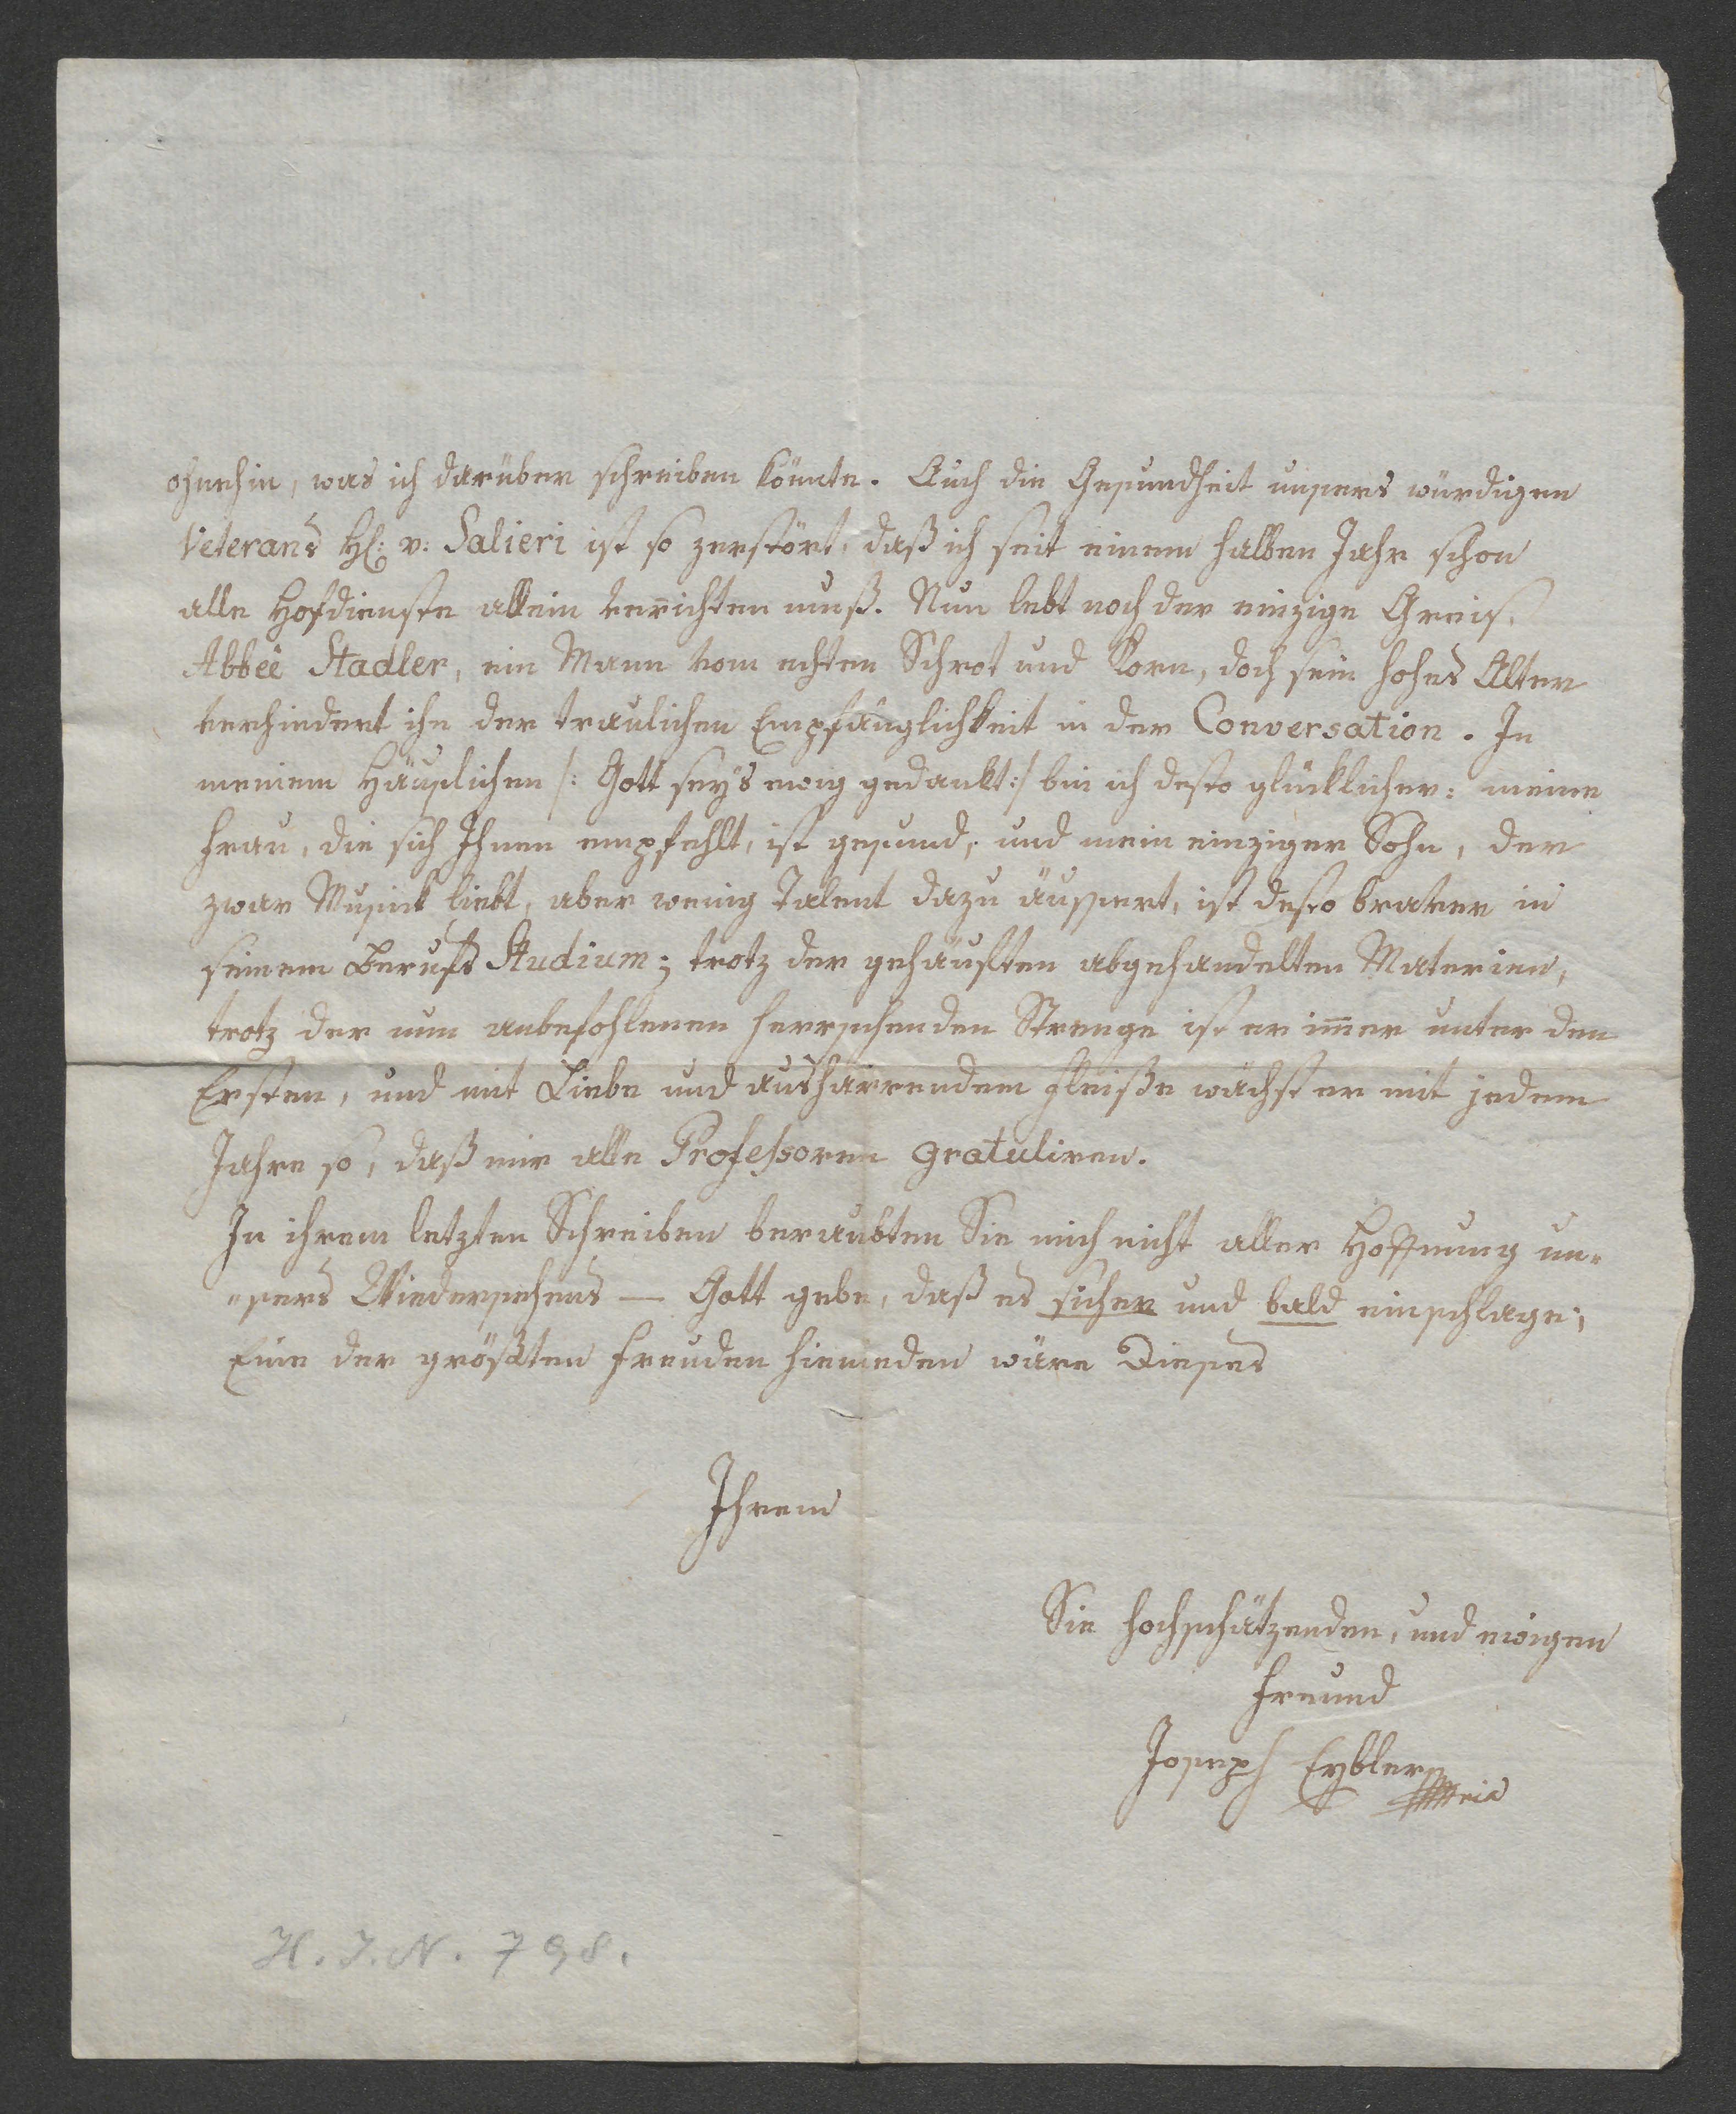 ohnehin, was ich darüber schreiben könnte. Auch die Gesundheit unsers würdigen
Veterans H: v: Salieri ist so zerstört, daß ich seit einem halben Jahr schon
alle Hofdienste allein verrichten muß. Nun lebt noch der einzige Greis,
Abbée Stadler, ein Mann vom echten Schrot und Korn, doch sein hohes Alter
verhindert ihn der traulichen Empfänglichkeit in der Conversation. In
meinem Häuslichen /: Gott sey's ewig gedankt:/ bin ich desto glücklicher: meine
Frau, die sich Ihnen empfehlt, ist gesund, und mein einziger Sohn, der
zwar Musick liebt, aber wenig Talent dazu äussert, ist desto braver in
seinem Berufs Studium; trotz der gehäuften abgehandelten Materien,
trotz der nun anbefohlenen herrschenden Strenge ist er im̅er unter den
Ersten, und mit Liebe und ausharrendem Fleiße wächst er mit jedem
Jahre so, daß mir alle Professoren gratuliren.
In ihrem letzten Schreiben beraubten Sie mich nicht aller Hoffnung un-
"sers Wiedersehens — Gott gebe, daß es sicher und bald einschlage;
Eine der größten Freuden hienieden wäre Dieses
Ihrem
Sie hochschätzenden, und ewigen
Freund
Joseph Eybler
H. I. N. 798.